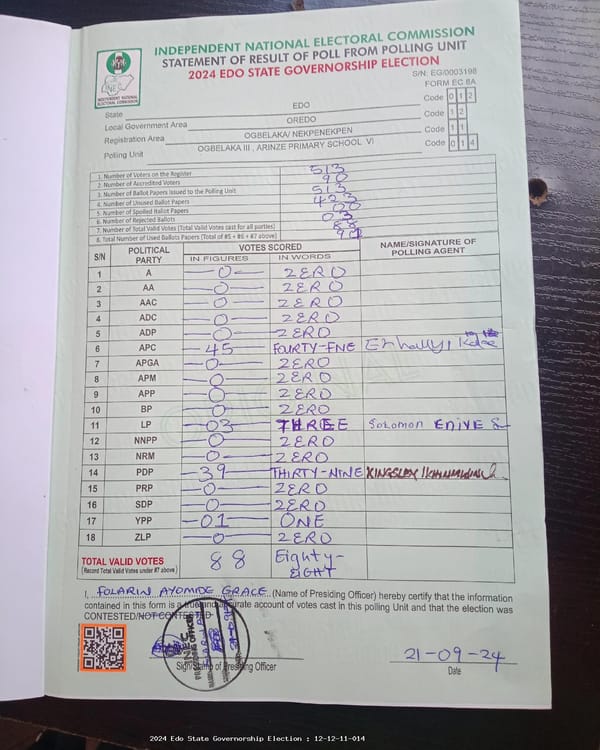 INDEPENDENT NATIONAL ELECTORAL COMMISSION
STATEMENT OF RESULT OF POLL FROM POLLING UNIT
2024 EDO STATE GOVERNORSHIP ELECTION
S/N: EG/0003198
FORM EC 8A
INDEPENDENT NATIONAL ELECTORAL COMMISSION
State EDO Code 012
Local Government Area OREDO Code 12
Registration Area OGBELAKA/ NEKPENEKPEN Code 11
Polling Unit OGBELAKA III , ARINZE PRIMARY SCHOOL VI Code 014
1. Number of Voters on the Register 513
2. Number of Accredited Voters 90
3. Number of Ballot Papers Issued to the Polling Unit 513
4. Number of Unused Ballot Papers 423
5. Number of Spoiled Ballot Papers 00
6. Number of Rejected Ballots 03
7. Number of Total Valid Votes (Total Valid Votes cast for all parties) 88
8. Total Number of Used Ballots Papers (Total of #5 + #6 + #7 above)
S/N POLITICAL PARTY VOTES SCORED NAME/SIGNATURE OF POLLING AGENT
IN FIGURES IN WORDS
1 A 0 ZERO
2 AA 0 ZERO
3 AAC 0 ZERO
4 ADC 0 ZERO
5 ADP 0 ZERO
6 APC 45 FOURTY-FNE
7 APGA 0 ZERO
8 APM 0 ZERO
9 APP 0 ZERO
10 BP 0 ZERO
11 LP 03 THREE Solomon ENIYE
12 NNPP 0 ZERO
13 NRM 0 ZERO
14 PDP 39 THIRTY-NINE KINGSLEY
15 PRP 0 ZERO
16 SDP 0 ZERO
17 YPP 01 ONE
18 ZLP 0 ZERO
TOTAL VALID VOTES 88 Eighty-EIGHT
(Record Total Valid Votes under #7 above)
I, FOLARIN AYOMIDE GRACE (Name of Presiding Officer) hereby certify that the information
contained in this form is a true and accurate account of votes cast in this polling Unit and that the election was
CONTESTED/NOT CONTESTED
INEC
PRESIDING OFFICER
Sign/Stamp of Presiding Officer
21-09-24
Date
2024 Edo State Governorship Election : 12-12-11-014